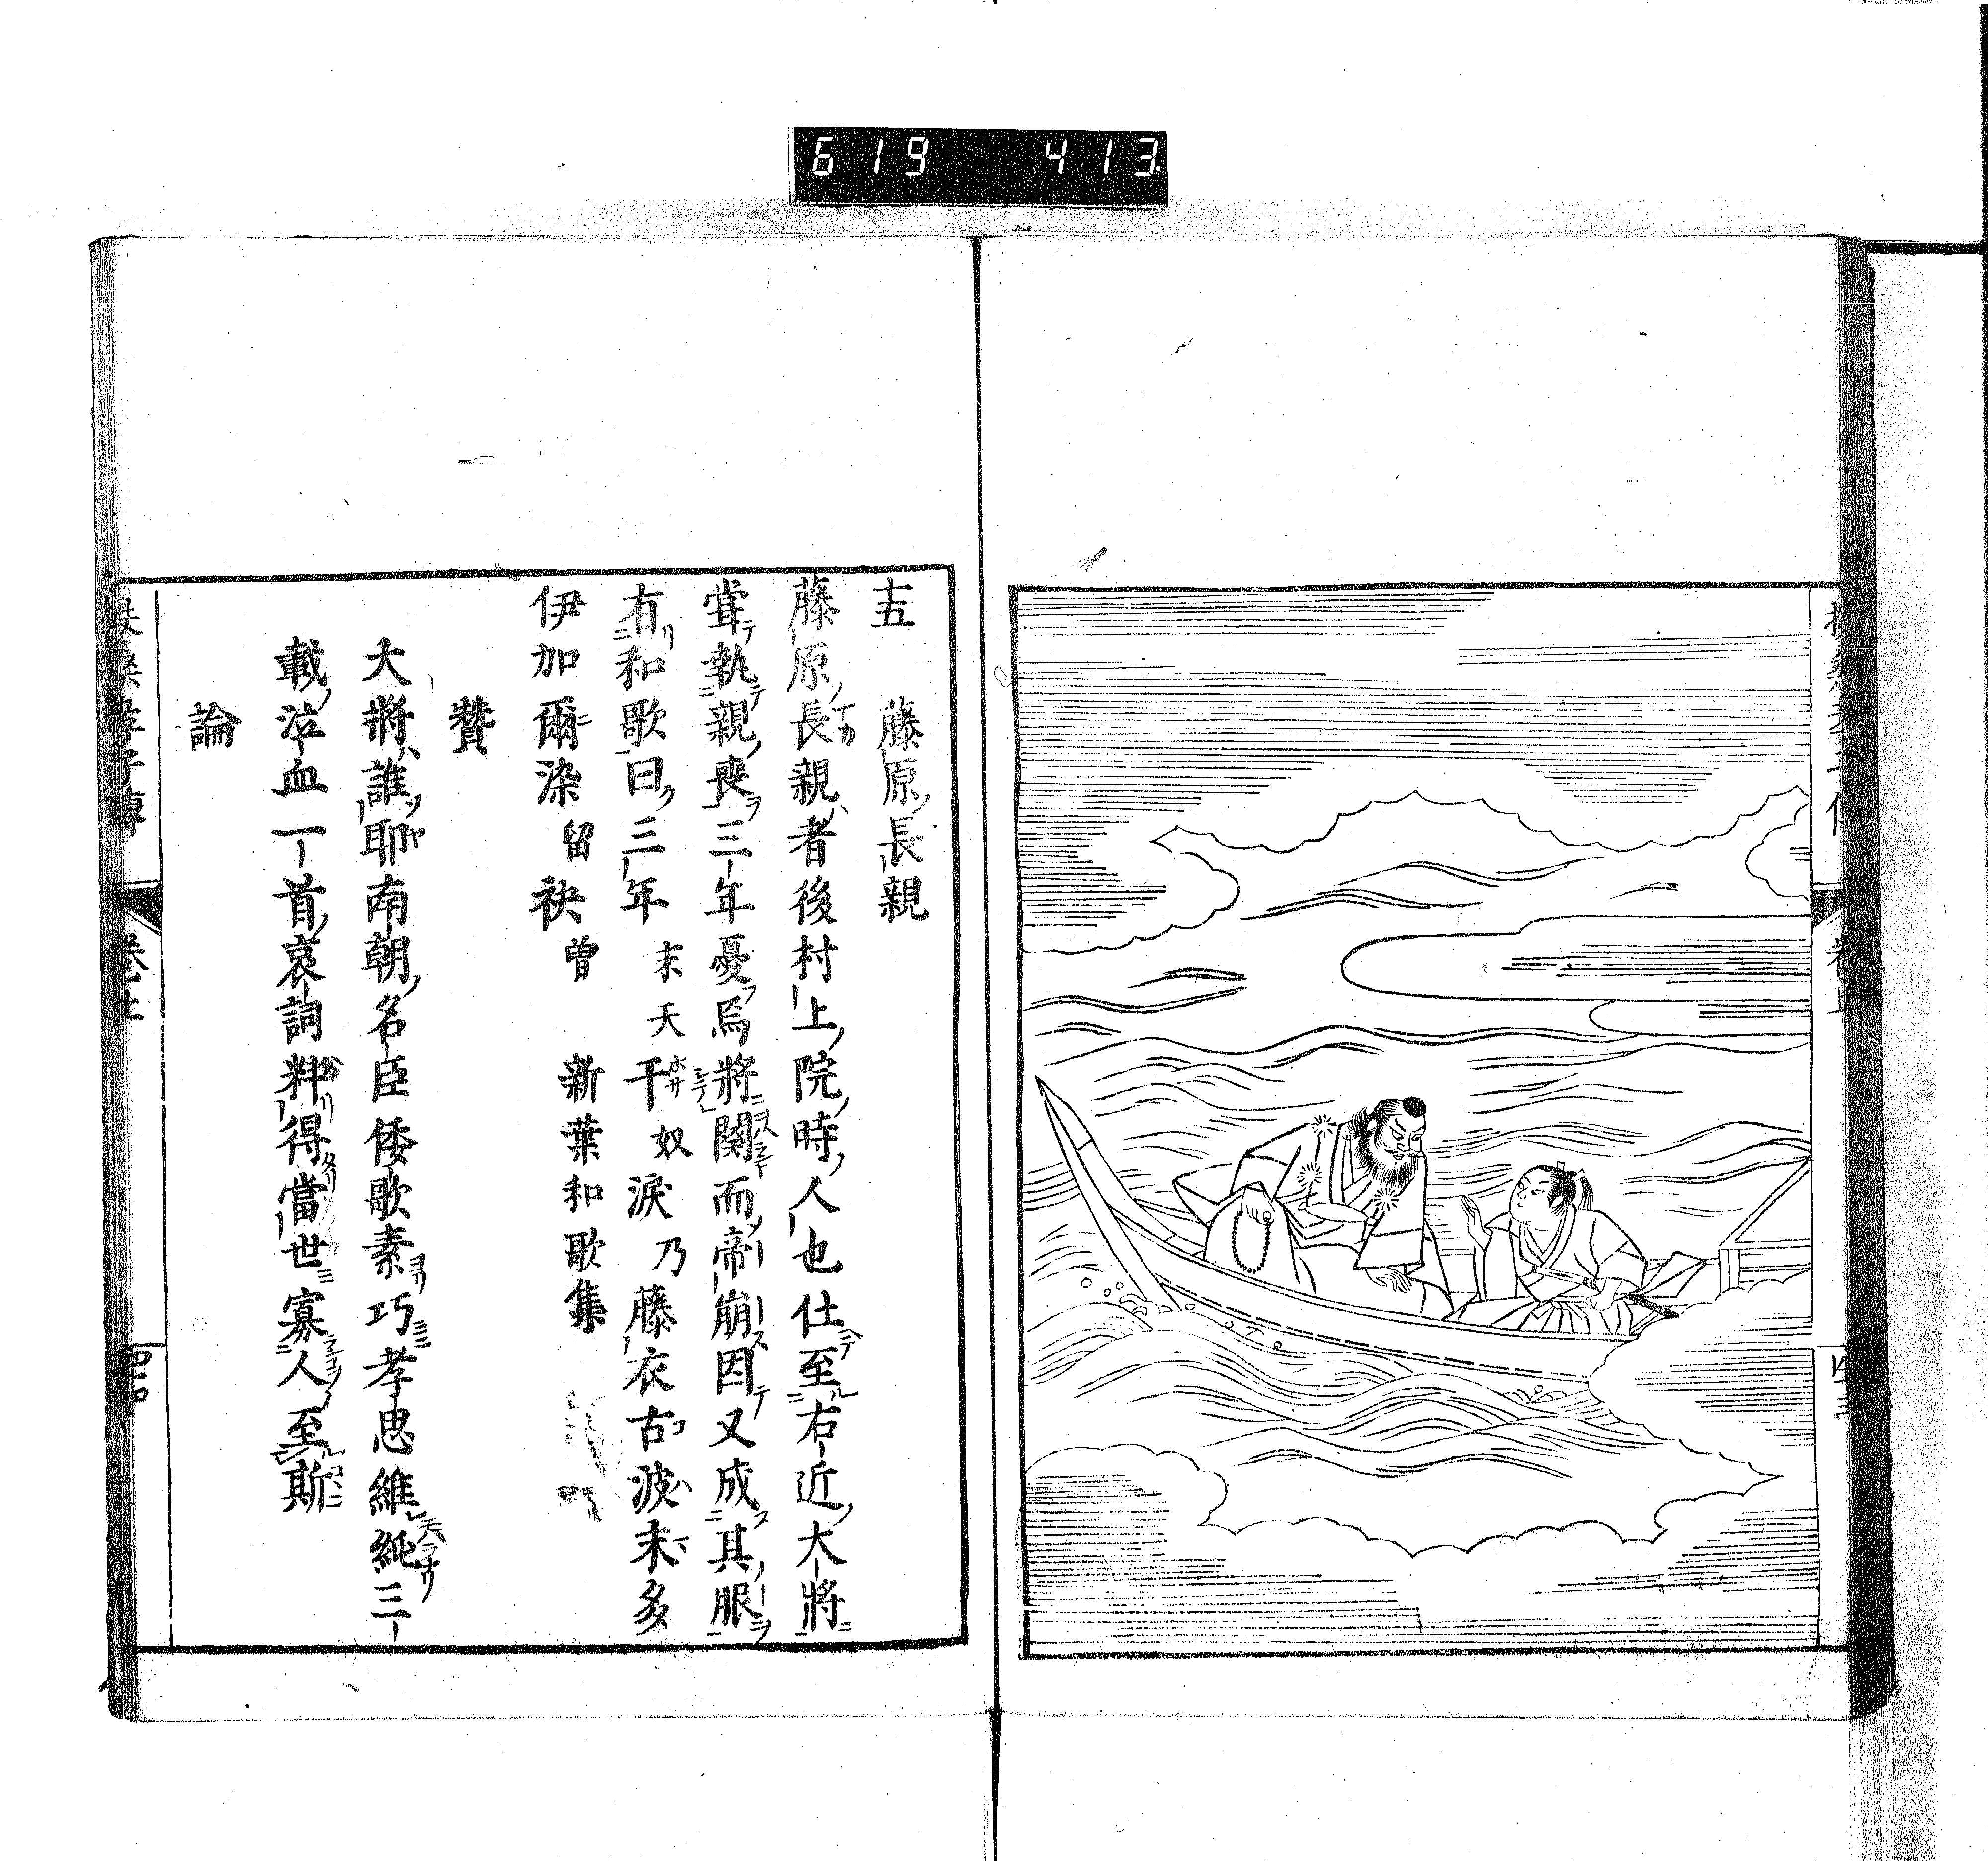 619 413
十五 藤原長親
藤原長親者後村上院時人也仕至右近大將
嘗執親喪三年憂焉將関而帝崩因又成其服
有和歌曰三年末天干奴淚乃藤衣古波末多
伊加爾染留袂曽 新葉和歌集
贊
大將誰耶南朝名臣倭歌素巧孝思維純三
載泣血一首哀詞料得當世寡人至斯
論